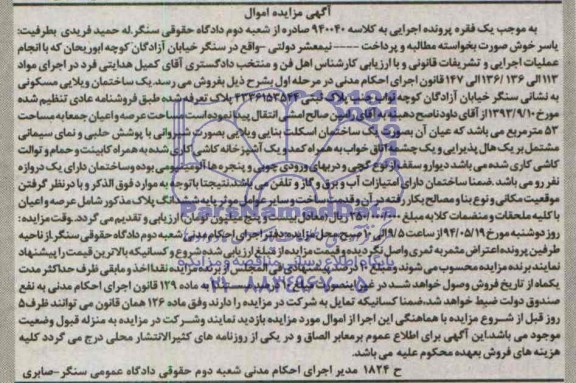 آگهی مزایده اموال
به موجب یک فقره پرونده اجرایی به کلاسه ۹۴۰۰۴۰ صادره از شعبه دوم دادگاه حقوقی سنگر.له حمید فریدی بطرفیت:
یاسر خوش صورت بخواسته مطالبه و پرداخت ---- نیمعشر دولتی -واقع در سنگر خیابان آزادگان کوچه ابوریحان که با انجام
عملیات اجرایی و تشریفات قانونی و با ارزیابی کارشناس اهل فن و منتخب دادگستری آقای کمیل هدایتی فرد در اجرای مواد
۱۱۳ الی ۱۳۶ /۱۲۶ الی ۱۴۷ قانون اجرای احکام مدنی در مرحله اول بشرح ذیل بفروش می رسد.یک ساختمان ویلایی مسکونی
به نشانی سنگر خیابان آزادگان کوچه پلاک تعرفه شده طبق فروشنامه عادی تنظیم شده
مورخ ۱۳۹۳/۹/۱۰ از آقای داود ناصح دهسه به آقای رامین صالح املشی انتقال پیدا نموده است.مساحت عرصه و اعیان جمعا به مساحت
۵۳ مترمربع می باشد که عیان آن بصورت یک ساختمان اسکلت بنایی ویلایی بصورت شیروانی با پوشش حلبی و نمای سیمانی
مشتمل بر یک هال پذیرایی و یک چشمه اتاق خواب به همراه کمد و یک آشپزخانه کاشی کاری شده به همراه کابینت و حمام و توالت
کاشی کاری شده می باشد دیوار و سقف از نوع گچی و دربهای ورودی چوبی و پنجره ها آلومینیومی بوده وساختمان دارای یک دروازه
نفر رو می باشد.ضمنا ساختمان دارای امتیازات آب و برق و گاز و تلفن می باشد.نتیجتا باتوجه به موارد فوق الذکر و با درنظر گرفتن
موقعیت مکانی و نوع بنا و مصالح بکار رفته در آن و قدمت ساخت و سایر عوامل موثر پایه ششدانگ پلاک مذکور شامل عرصه و اعیان
با کلیه ملحقات و منضمات کلا به مبلغ معادل بیست و پنج میلیون تومان ارزیابی و تقدیم می گردد. وقت مزایده:
روز دوشنبه مورخ ۹۴/۰۵/۱۹ از ساعت ۸/۵ الی ۹ صبح محل مزایده:دفتر اجرای احکام مدنی شعبه دوم دادگاه حقوقی سنگر.از ناحیه
طرفین پرونده اعتراض مثمر به ثمری واصل نگردیده و قیمت مزایده از مبلغ ارزیابی شده شروع و کسانیکه بالاترین قیمت را پیشنهاد
نمایند برنده مزایده محسوب می شوند ومبلغ ۱۰ درصد پیشنهادی فی المجلس از برنده مزایده نقدا اخذ و مابقی ظرف حداکثر مدت
یکماه از تاریخ فروش وصول خواهد شد. در غیر اینصورت به ماده ۱۲۹ قانون اجرای احکام مدنی به نفع
صندوق دولت ضبط خواهد شد.ضمنا کسانیکه تمایل به شرکت در مزایده را دارند وفق ماده ۱۲۶ همان قانون می توانند ظرف ۵
روز قبل از شروع مزایده با هماهنگی این اجرا از اموال مورد مزایده بازدید نمایند وشرکت در مزایده به منزله قبول وضعیت
موجود می باشد.این آگهی برای اطلاع عموم برمعابر الصاق و در یکی از روزنامه های کثیرالانتشار محلی درج می گردد کلیه
هزینه های فروش بعهده محکوم علیه می باشد.
ح ۱۸۲۴ مدیر اجرای احکام مدنی شعبه دوم حقوقی دادگاه عمومی سنگر-صابری